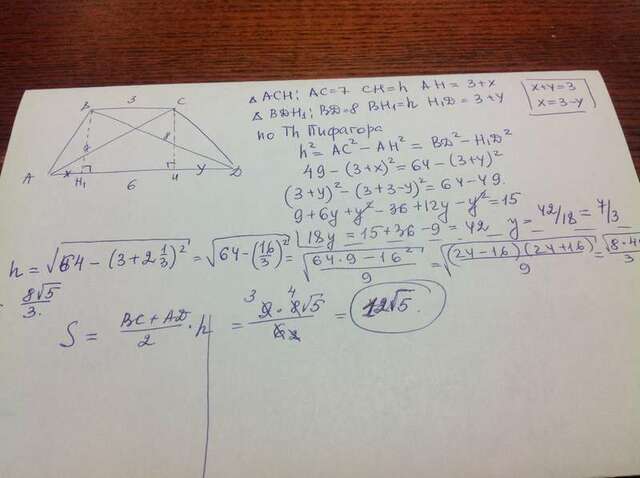 B 3 C
A x H₁ 6 H y D
8
△ ACH; AC=7 CH=h AH = 3+x
△ BDH₁; BD=8 BH₁=h H₁D = 3+y
x+y=3
x=3-y
по Th Пифагора
h² = AC² - AH² = BD² - H₁D²
49 - (3+x)² = 64 - (3+y)²
(3+y)² - (3+3-y)² = 64-49.
9+6y+y² - 36+12y-y² = 15
18y = 15+36-9 = 42 y = 42/18 = 7/3
h = √(64 - (3+2 1/3)²) = √(64-(16/3)²) = √((64·9-16²)/9) = √((24-16)(24+16)/9) = √(8·40/3
= 8√5/3.
S = (BC+AD)/2 · h = 9·8√5/6 3 4 2 = 12√5.